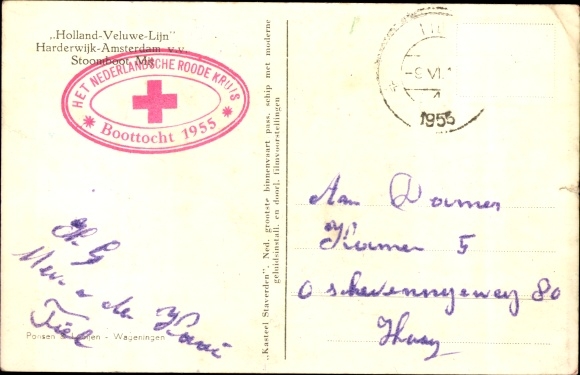 „Holland-Veluwe-Lijn"
Harderwijk-Amsterdam v.v.
Stoomboot Mij
HET NEDERLANDSCHE ROODE KRUIS
* Boottocht 1955 *
H. G
Mev. de Kooi
Tiel
Ponsen & Looijen - Wageningen
„Kasteel Staverden". Ned. grootste binnenvaart pass. schip met moderne
geluidsinstall. en doorl. filmvoorstellingen
-9 VI.
1955
Aan Dames
Kamer 5
o scheveningeweg 80
Haag